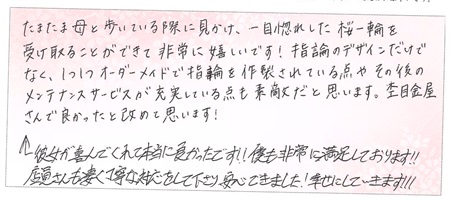 たまたま母と歩いている際に見かけ、一目惚れした桜一輪を
受け取ることができて非常に嬉しいです！指論のデザインだけで
なく、1つ1つオーダーメイドで指輪を作製されている点やその後の
メンテナンスサービスが充実している点も素敵だと思います。杢目金屋
さんで良かったと改めて思います！
↑彼女が喜んでくれて本当に良かったです!!僕も非常に満足しております!!
店員さんも凄く丁寧な対応をして下さり、安心できました！幸せにしていきます!!!